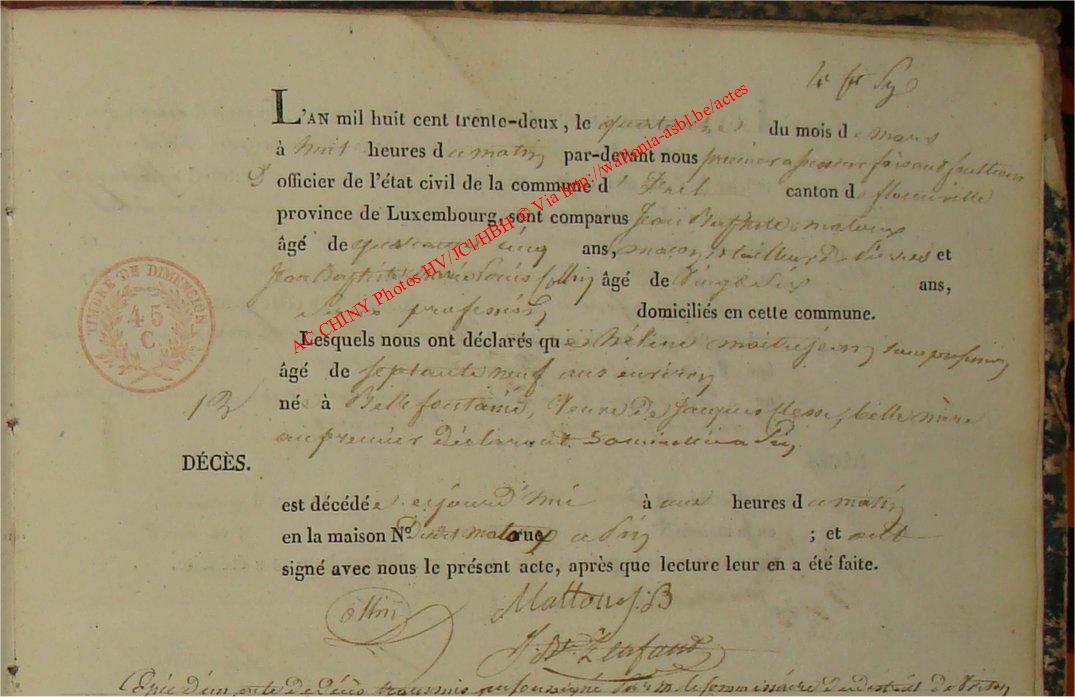 L'AN mil huit cent trente-deux, le quatorze du mois de mars
à huit heures du matin par-devant nous premier assesseur faisant fonctions
d' officier de l'état civil de la commune d' canton de florenville
province de Luxembourg, sont comparus Jean Baptiste maloux
âgé de quarante cinq ans, maçon et tailleur de Pierres et
Jean Baptiste Louis Collin âgé de Vingt Six ans,
Sans profession domiciliés en cette commune.
Lesquels nous ont déclarés que hélène maitrejean sans profession
âgé de septante neuf ans environ
13
née à Bellefontaine, Veuve de Jacques belle mère
au premier Déclarant
DÉCÈS.
est décédée cejourd'hui à une heures du matin
en la maison No. Dudit maloux rue a Pin ; et ont
signé avec nous le présent acte, après que lecture leur en a été faite.
Collin Mattoux J.B
J. Bte
Copie d'un acte de décès transmis au soussigné par m le Commissaire du district de
TIMBRE DE DIMENSION
45
C.
AC CHINY Photos HV/JCl/HBH © Via http://wallonia-asbl.be/actes